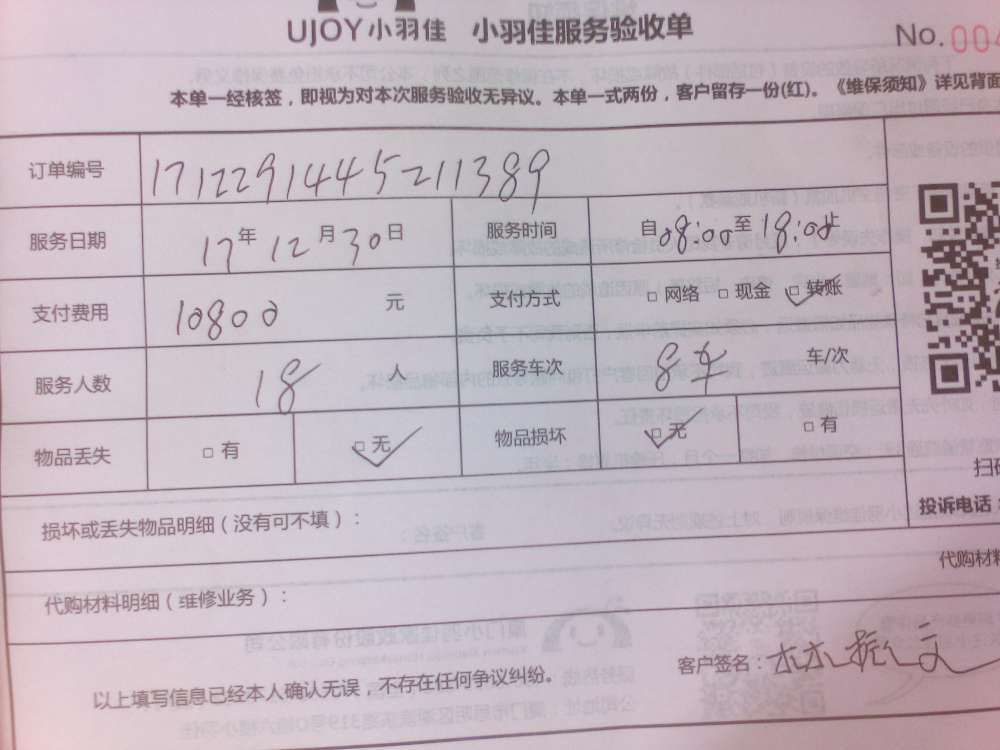 UJOY小羽佳 小羽佳服务验收单
No. 004
本单一经核签，即视为对本次服务验收无异议。本单一式两份，客户留存一份(红)。《维保须知》详见背面
订单编号 1712291445211389
服务日期 17年12月30日 服务时间 自08:00至18:00止
支付费用 10800 元 支付方式 □网络 □现金 □转账
服务人数 18 人 服务车次 8车 车/次
物品丢失 □有 □无 物品损坏 □无 □有
扫码
损坏或丢失物品明细（没有可不填）：
投诉电话：
代购材料
代购材料明细（维修业务）：
以上填写信息已经本人确认无误，不存在任何争议纠纷。
客户签名：林振文